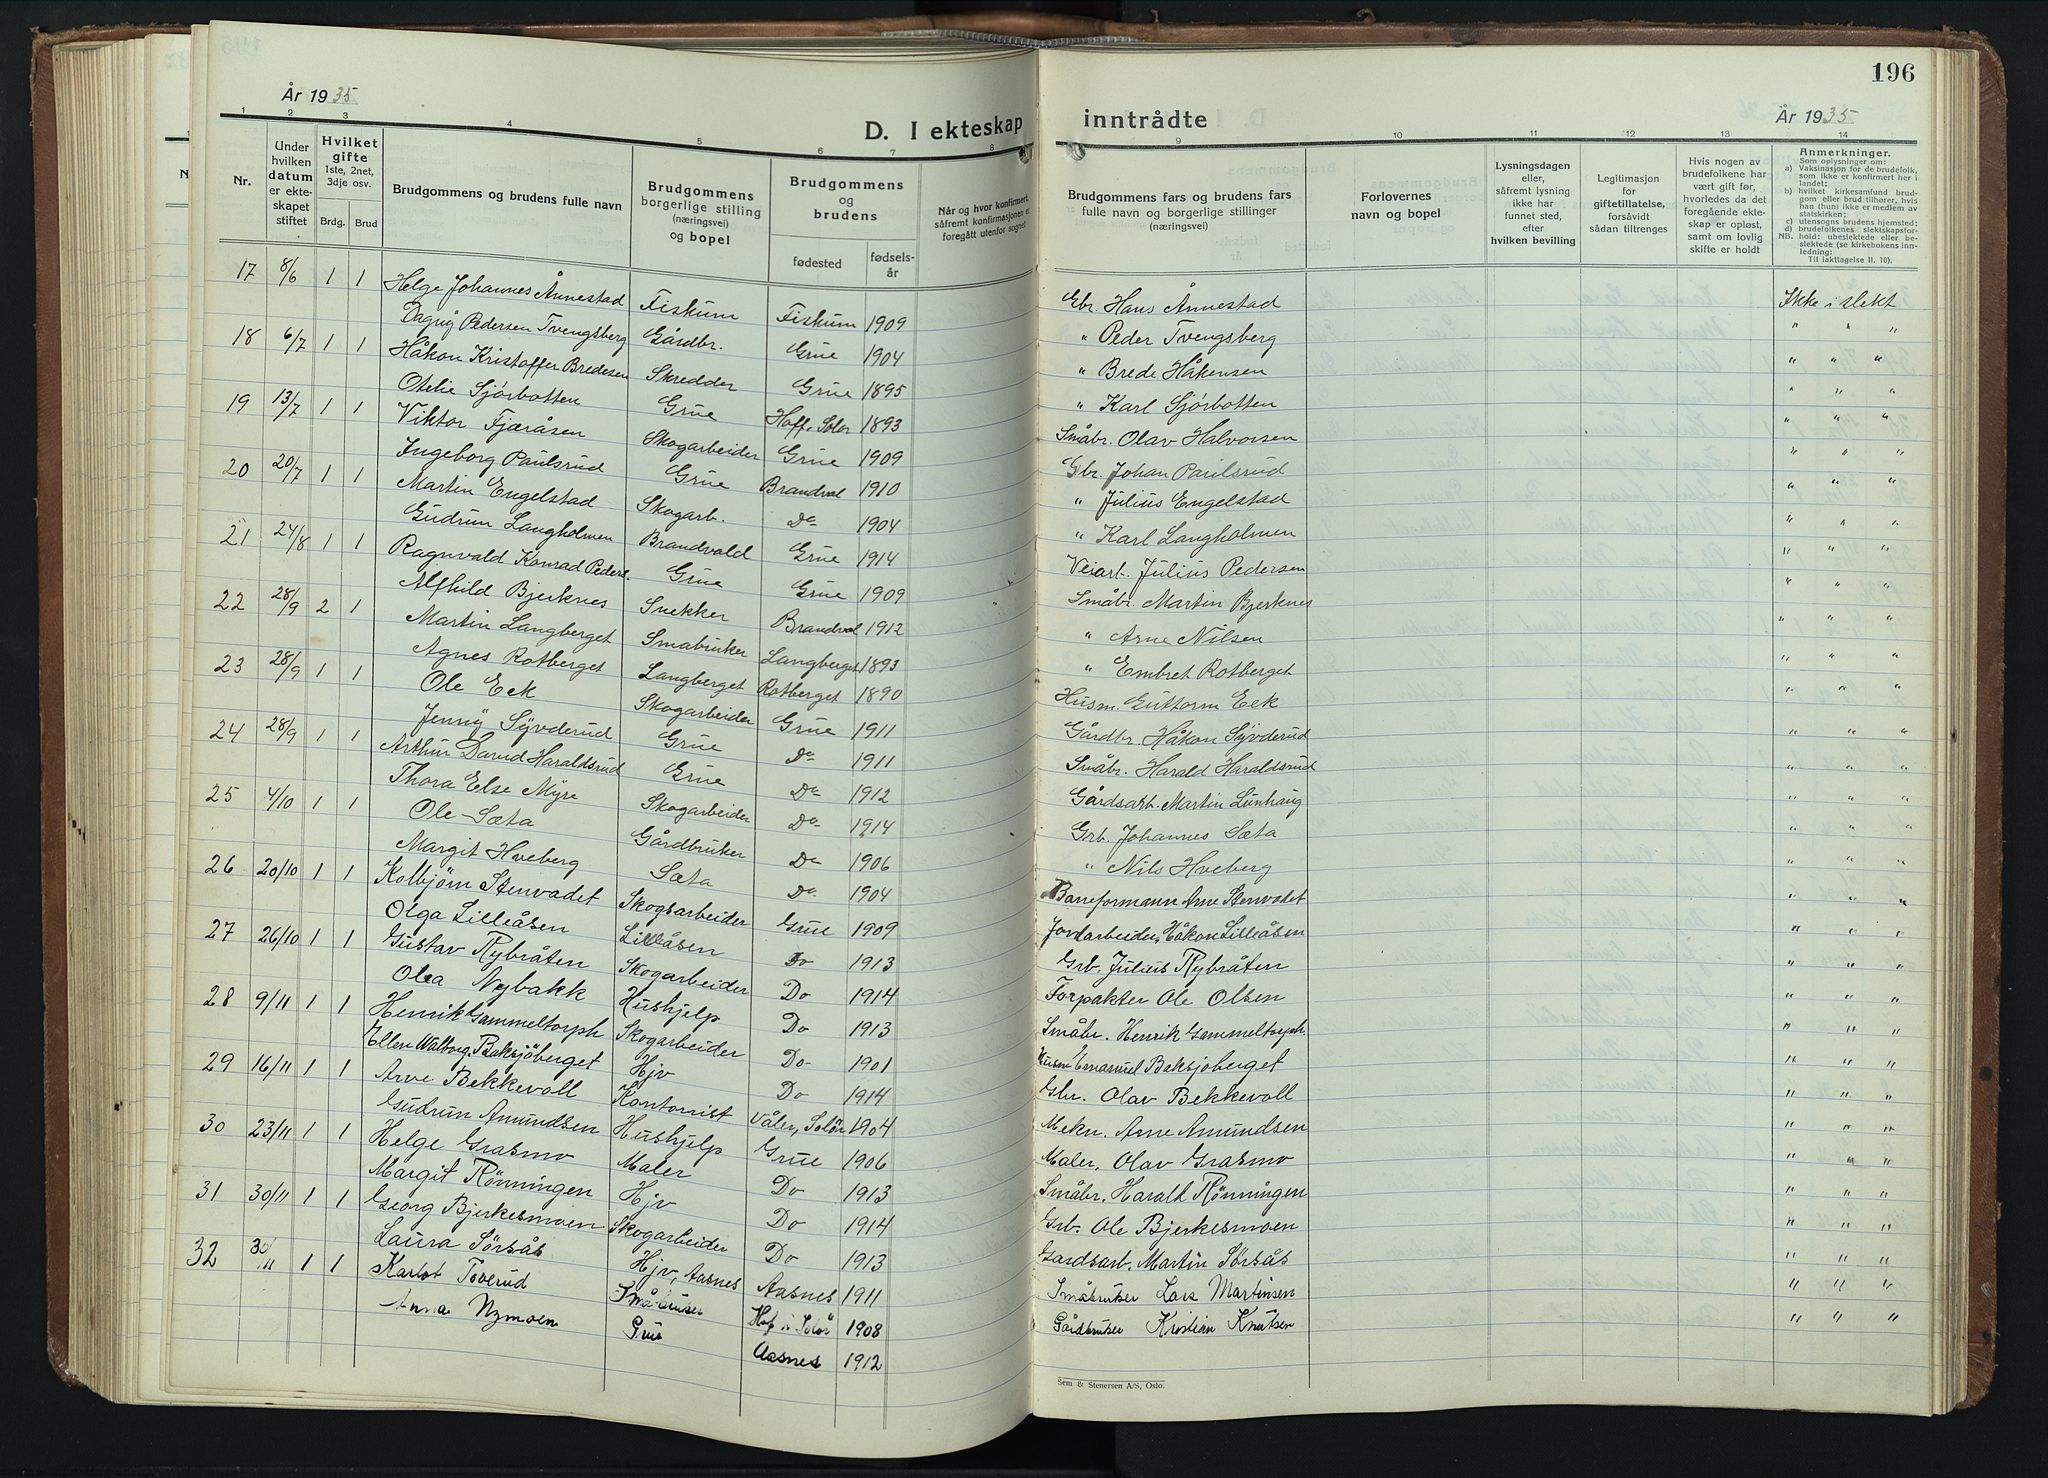 År 1935
D. I ekteskap inntrådte
År 1935
196
1 2 3 4 5 6 7 8 9 10 11 12 13 14
Nr.
Under hvilken datum er ekteskapet stiftet
Hvilket gifte 1ste, 2net, 3dje osv.
Brdg. Brud
Brudgommens og brudens fulle navn
Brudgommens borgerlige stilling (næringsvei) og bopel
Brudgommens og brudens
fødested
fødselsår
Når og hvor konfirmert, såfremt konfirmasjonen er foregått utenfor sognet
Brudgommens fars og brudens fars fulle navn og borgerlige stillinger (næringsvei)
Forlovernes navn og bopel
Lysningsdagen eller, såfremt lysning ikke har funnet sted, efter hvilken bevilling
Legitimasjon for giftetillatelse, forsåvidt sådan tiltrenges
Hvis nogen av brudefolkene har vært gift før, hvorledes da det foregående ekteskap er opløst, samt om lovlig skifte er holdt
Anmerkninger.
Som oplysninger om:
a) Vaksinasjon for de brudefolk, som ikke er konfirmert her i landet;
b) hvilket kirkesamfund brudgom eller brud tilhører, hvis han (hun) ikke er medlem av statskirken;
c) utensogns brudens hjemsted;
d) brudefolkenes slektskapsforhold: ubeslektede eller beslektede (se kirkebokens innledning:
NB. Til iakttagelse II. 10).
17 8/6 1 1 Helge Johannes Ånnestad Fiskum Fiskum 1909 Gbr. Hans Ånnestad Ikke i slekt
Dagny Pedersen Tvengsberg Gårdbr. Grue 1904 " Peder Tvengsberg " " "
18 6/7 1 1 Håkon Kristoffer Bredesen Skredder Grue 1895 " Brede Håkensen " " "
Otelie Sjørbotten Grue Hoff, Solør 1893 " Karl Sjørbotten " " "
19 13/7 1 1 Viktor Fjæråsen Skogarbeider Grue 1909 Småbr. Olav Halvorsen " " "
Ingeborg Paulsrud Grue Brandval 1910 Gbr. Johan Paulsrud " " "
20 20/7 1 1 Martin Engelstad Skogarb. Do 1904 " Julius Engelstad " " "
Gudrun Langholmen Brandvald Grue 1914 " Karl Langholmen " " "
21 24/8 1 1 Ragnvald Konrad Peders. Grue Grue 1909 Veiarb. Julius Pedersen " " "
Alfhild Bjerknes Snekker Brandval 1912 Småbr. Martin Bjerknes " " "
22 28/9 2 1 Martin Langberget Småbruker Langberget 1893 " Arne Nilsen " " "
Agnes Rotberget Langberget Rotberget 1890 " Embret Rotberget " " "
23 28/9 1 1 Ole Eek Skogarbeider Grue 1911 Husm. Guttorm Eek " " "
Jenny Syvderud Grue Do 1911 Gårdbr. Håkon Syvderud " " "
24 28/9 1 1 Arthur David Haraldsrud Grue Do 1912 Småbr. Harald Haraldsrud " " "
Thora Else Myre Skogarbeider Do 1914 Gårdsarb. Martin Lunhaug " " "
25 4/10 1 1 Ole Sæta Gårdbruker Do 1906 Grb. Johannes Sæta " " "
Margit Hveberg Sæta Do 1904 " Nils Hveberg " " "
26 20/10 1 1 Kolbjørn Stenvadet Skogsarbeider Grue 1909 Baneformann Arne Stenvadet " " "
Olga Lilleåsen Lilleåsen Do 1913 Jordarbeider, Håkon Lilleåsen " " "
27 26/10 1 1 Gustav Rybråten Skogarbeider Do 1914 Grb. Julius Rybråten " " "
Olea Nybakk Hushjelp Do 1913 Forpakter Ole Olsen " " "
28 9/11 1 1 Henrik Gammeltorph Skogarbeider Do 1901 Småbr. Henrik Gammeltorph. " " "
Ellen Walborg Baksjøberget Hjv Do 1914 Husm Emanuel Baksjøberget " " "
29 16/11 1 1 Arve Bekkevoll Kontorist Våler, Solør 1904 Gbr. Olav Bekkevoll " " "
Gudrun Amundsen Hushjelp Grue 1906 Mekn. Arne Amundsen " " "
30 23/11 1 1 Helge Grasmo Maler Do 1913 Maler, Olav Grasmo " " "
Margit Rönningen Hjv Do 1914 Småbr. Harald Rönningen " " "
31 30/11 1 1 Georg Bjerkesmoen Skogarbeider Do 1913 Grb. Ole Bjerkesmoen " " "
Laura Sørsås Hjv, Aasnes Aasnes 1911 Gardsarb. Martin Sørsås " " "
32 30/11 1 1 Karlot Toverud Småbruker Hof i Solør 1908 Småbruker Lars Martinsen " " "
Anna Nymoen Grue Aasnes 1912 Gårdbruker Kristian Knutsen " " "
Sem & Stenersen A/S, Oslo.